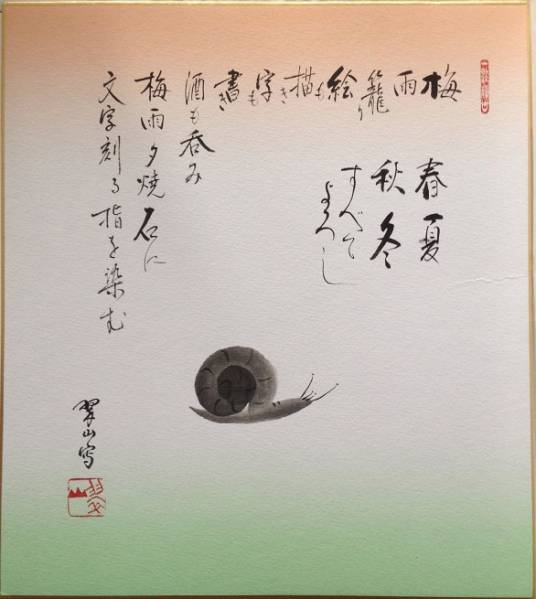 梅
雨
籠り
絵も
描き
字も
書き
酒も呑み
梅雨夕焼石に
文字刻る指を染む
春夏
秋冬
すべて
よろし
翠山写